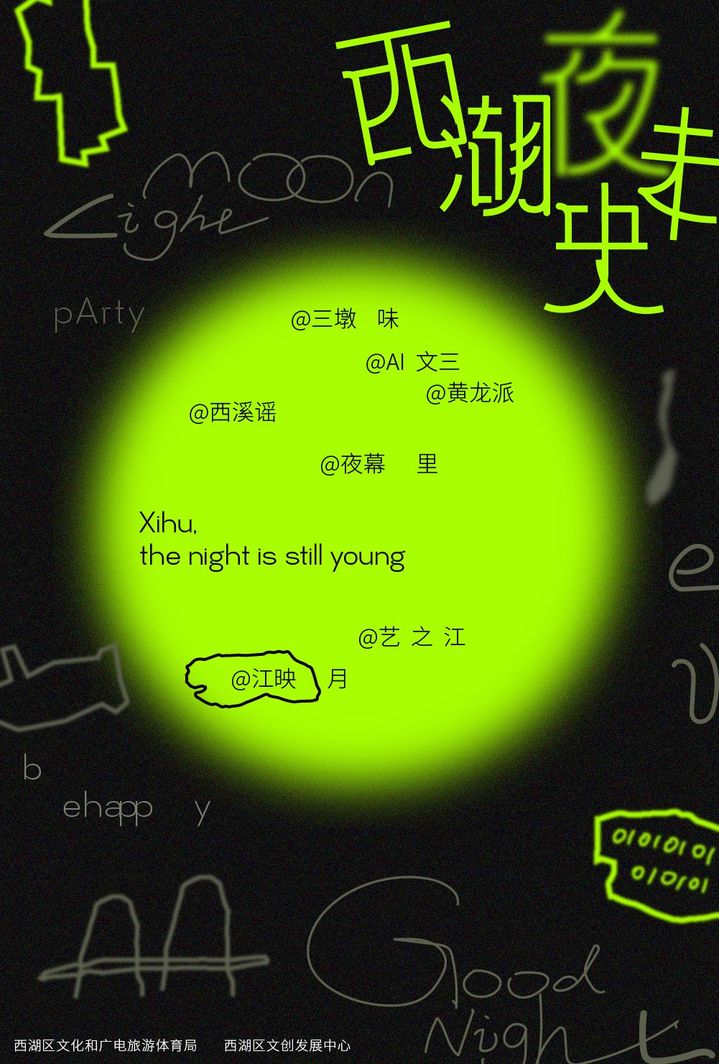 西湖夜未央
moon
Light
pArty
@三墩 味
@AI 文三
@黄龙派
@西溪谣
@夜幕 里
Xihu,
the night is still young
@艺 之 江
@江映 月
b
ehapp y
01010101
010101
Good
Night
西湖区文化和广电旅游体育局 西湖区文创发展中心